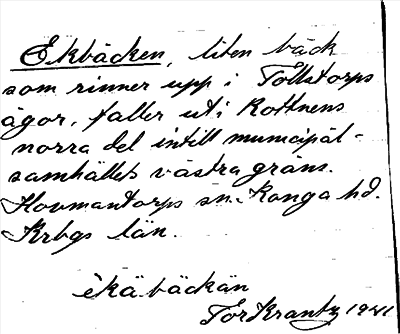 Ekbäcken, liten bäck
som rinner upp i Tollstorps
ägor, faller ut i Rottnens
norra del intill municipal-
samhällets västra gräns.
Hovmantorps sn. Konga hd.
Krbgs län.
èkä. bäckän
Tor Krantz 1941